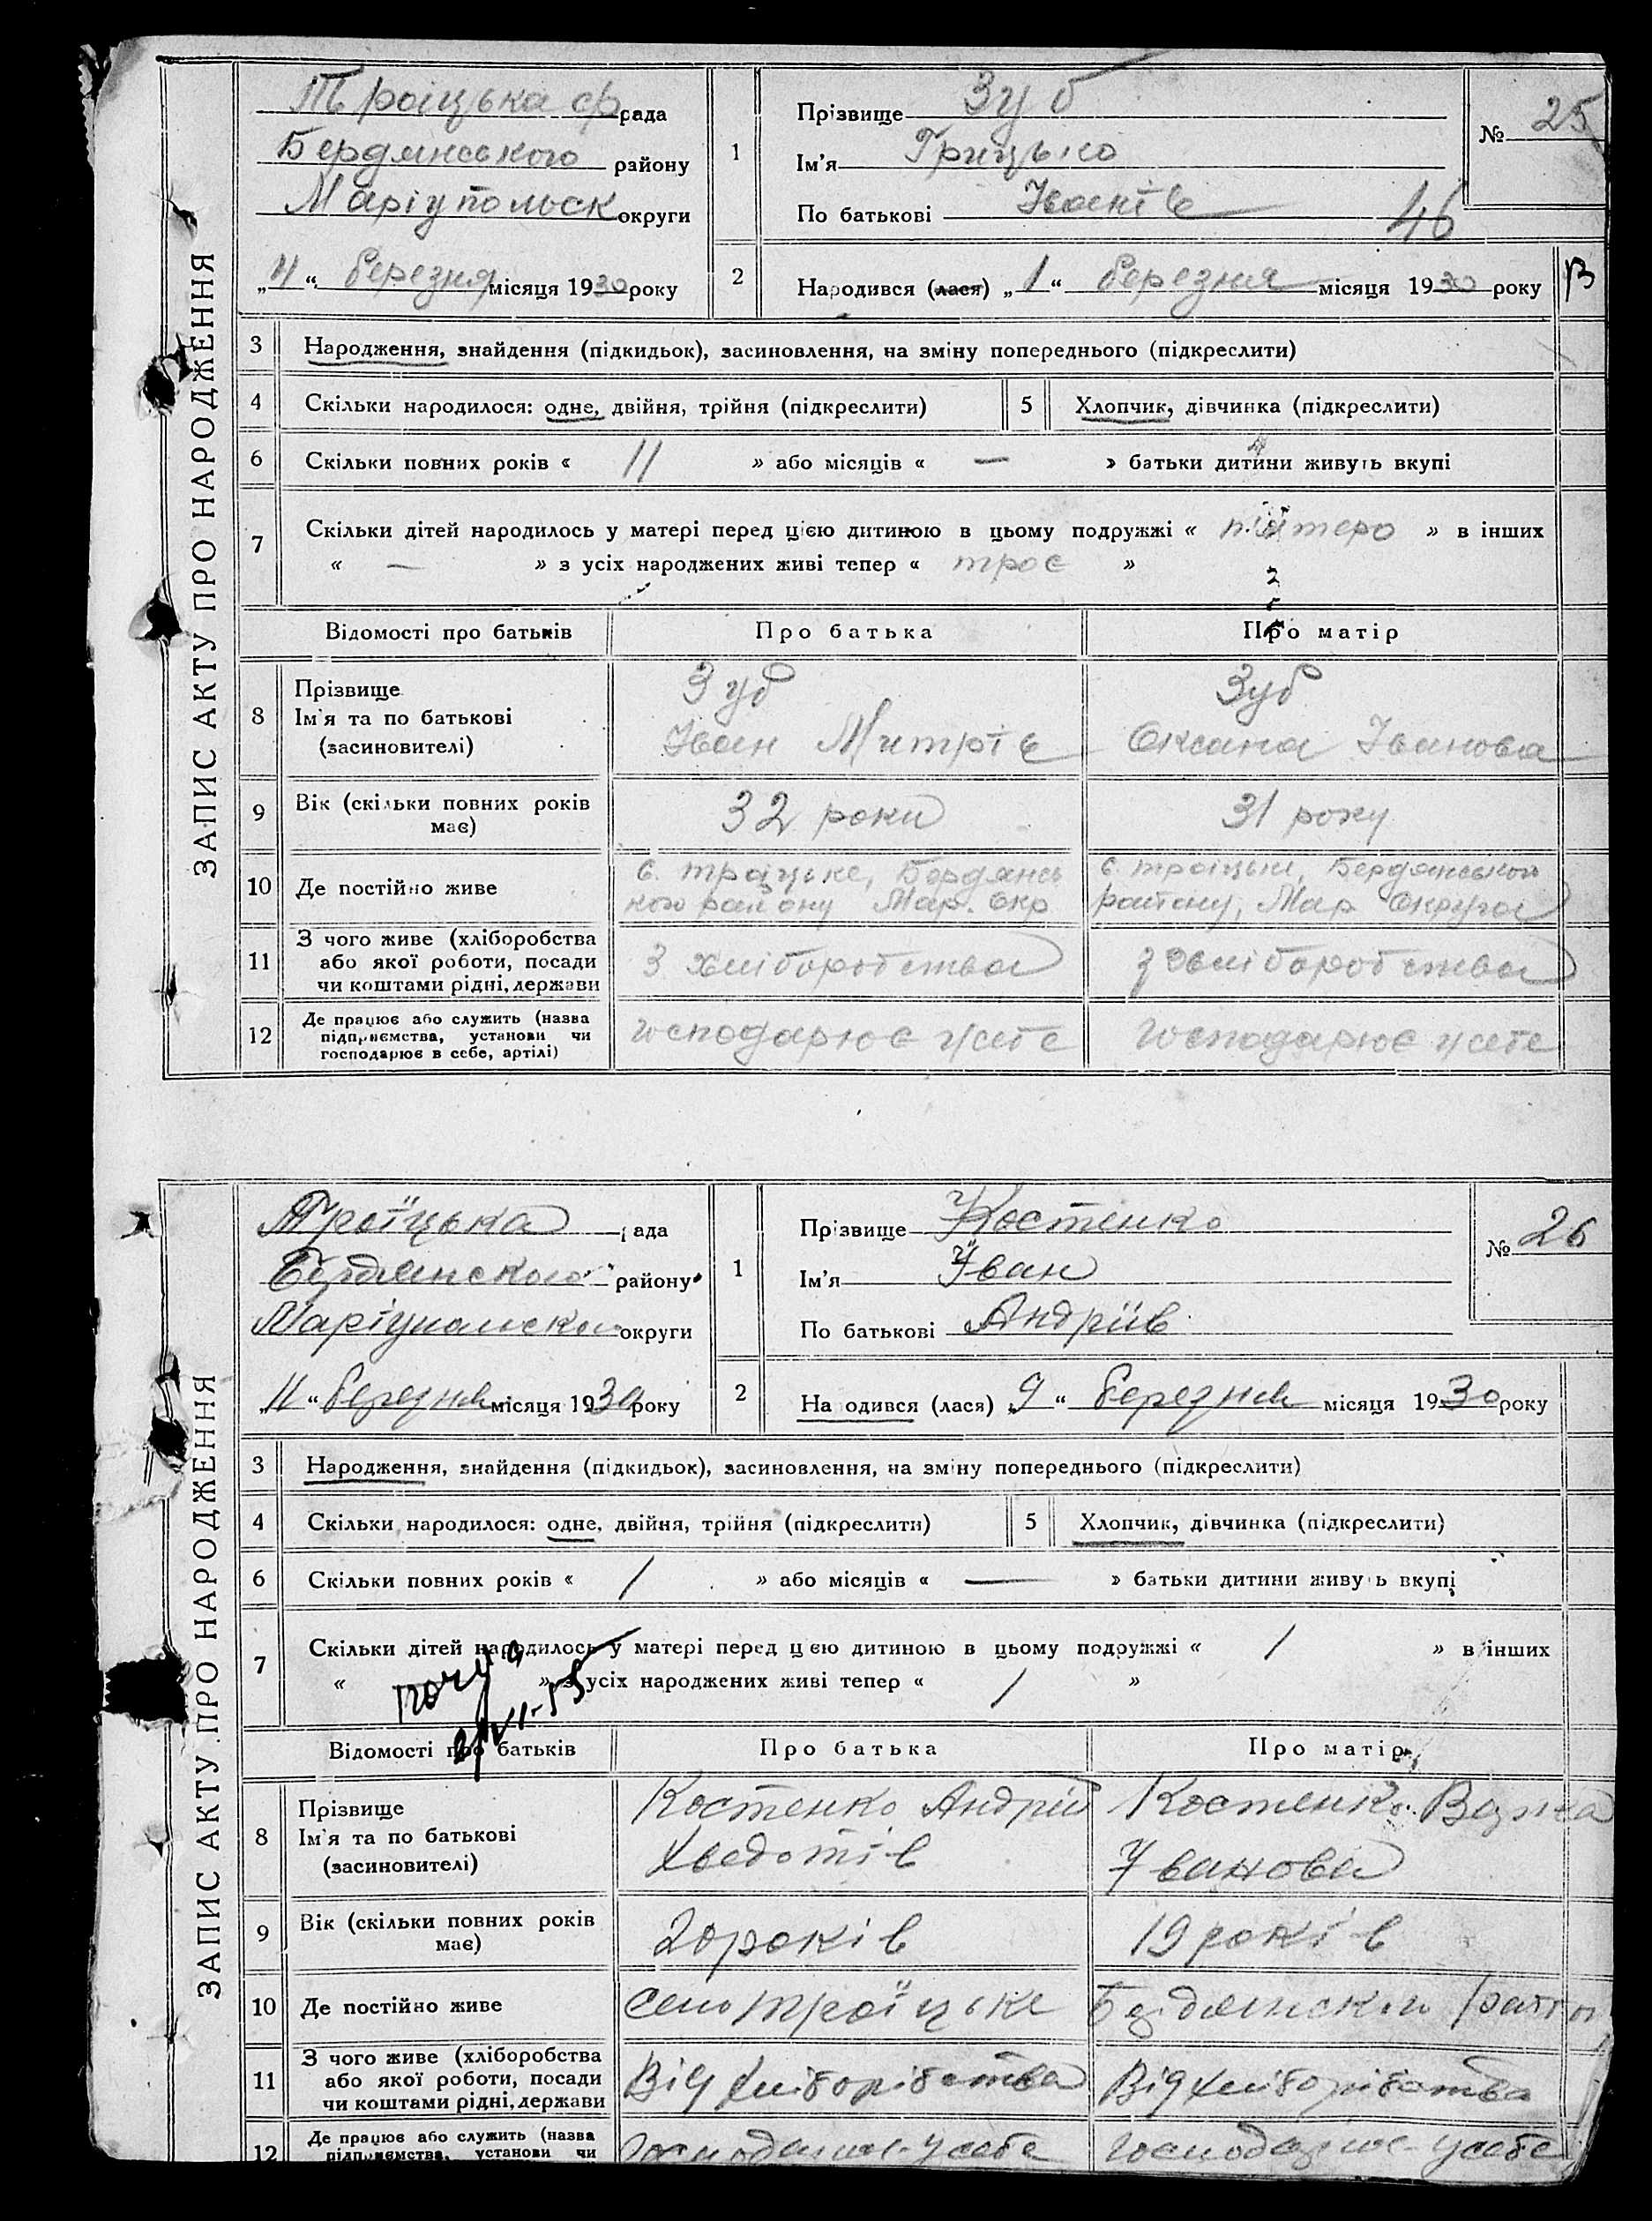 ЗАПИС АКТУ ПРО НАРОДЖЕННЯ
Троіцька с/р рада
Бердянського району
Маріупольск округи
„11“ березня місяця 1930 року
1
Прізвище Зуб
Ім'я Грицько
По батькові Іванів
46
№ 25
2
Народився (лася) „1“ березня місяця 1930 року
В
3 Народження, знайдення (підкидьок), засиновлення, на зміну попереднього (підкреслити)
4 Скільки народилося: одне, двійня, трійня (підкреслити) 5 Хлопчик, дівчинка (підкреслити)
6 Скільки повних років « 11 » або місяців « — » батьки дитини живуть вкупі
7 Скільки дітей народилось у матері перед цією дитиною в цьому подружжі « пятеро » в інших
« — » з усіх народжених живі тепер « троє »
Відомості про батьків Про батька Про матір
8 Прізвище Ім'я та по батькові (засиновителі)
Зуб Іван Митрів
Зуб Оксана Іванова
9 Вік (скільки повних років має)
32 роки
31 року
10 Де постійно живе
с. Троіцьке, Бердянського району Мар. Окр
с. Троіцьке, Бердянського району, Мар Округи
11 З чого живе (хліборобства або якої роботи, посади чи коштами рідні, держави
З хліборобства
З хліборобства
12 Де працює або служить (назва підприємства, установи чи господарює в себе, артілі)
господарює у себе
господарює у себе
ЗАПИС АКТУ ПРО НАРОДЖЕННЯ
Троїцька рада
Бердянского району
округи
„11“ березня місяця 1930 року
1
Прізвище Костенко
Ім'я Іван
По батькові Андріїв
№ 26
2
Народився (лася) 9 “ березня місяця 1930 року
3 Народження, знайдення (підкидьок), засиновлення, на зміну попереднього (підкреслити)
4 Скільки народилося: одне, двійня, трійня (підкреслити) 5 Хлопчик, дівчинка (підкреслити)
6 Скільки повних років « 1 » або місяців « — » батьки дитини живуть вкупі
7 Скільки дітей народилось у матері перед цією дитиною в цьому подружжі « 1 » в інших
« » з усіх народжених живі тепер « 1 »
Відомості про батьків Про батька Про матір
8 Прізвище Ім'я та по батькові (засиновителі)
Костенко Андрій Хведотів
Костенко Іванова
9 Вік (скільки повних років має)
20 років
19 років
10 Де постійно живе
село Троїцьке
Бердянского
11 З чого живе (хліборобства або якої роботи, посади чи коштами рідні, держави
Від хліборібства
Від хліборібства
12 Де працює або служить (назва підприємства, установи чи
господарює у себе
господарює у себе